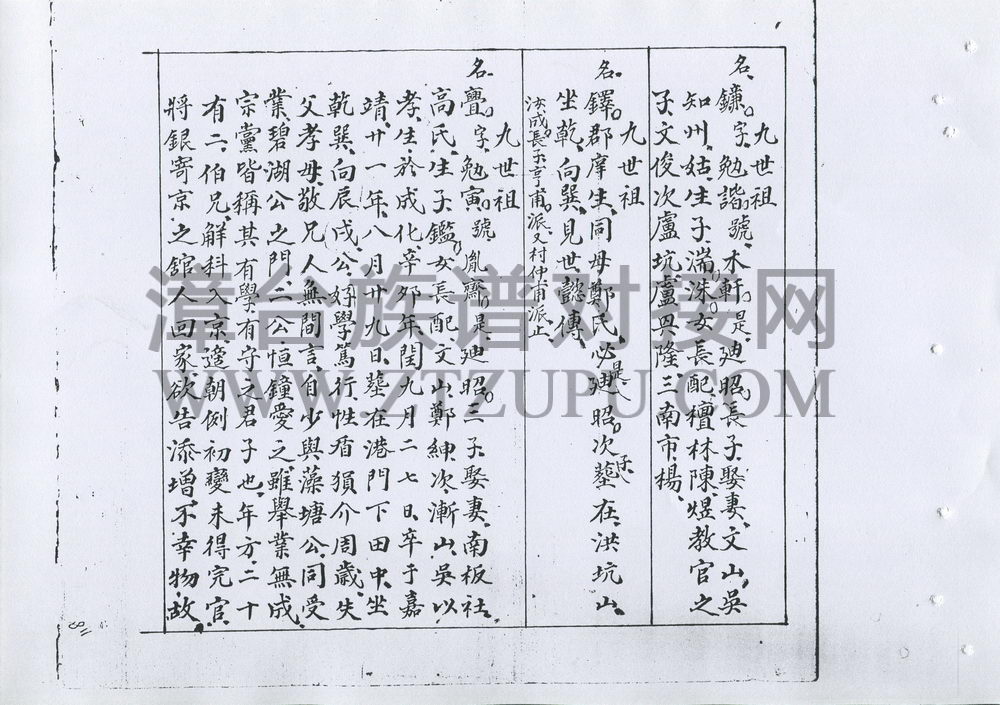 九世祖
名鐮字勉諧號木軒是廸昭長子娶妻文山吳
知州姑生子湍洙女長配檀林陳煜教官之
子文俊次盧坑盧興隆三南市楊
九世祖
名鐸郡庠生同母鄭氏必是廸昭次子墓在洪坑山
坐乾向巽見世懿傳
汝成長子亨甫派又村仲甫派止
九世祖
名亹字勉寅號胤齋是廸昭三子娶妻南板社
高氏生子鑑女長配文山鄭紳次漸山吳以
孝生於成化辛卯年閏九月二七日卒于嘉
靖廿一年八月廿九日墓在港門下田中坐
乾巽向辰戌公好學篤行性盾狷介周歲失
父孝母敬兄人無間言自少與藻塘公同受
業碧湖公之門二公恒鐘愛之雖舉業無成
宗黨皆稱其有學有守之君子也年方二十
有二伯兄解科入京適朝例初變未得完官
將銀寄京之舘人回家欲告添增不幸物故
118
漳台族谱对接网
WWW.ZTZUPU.COM